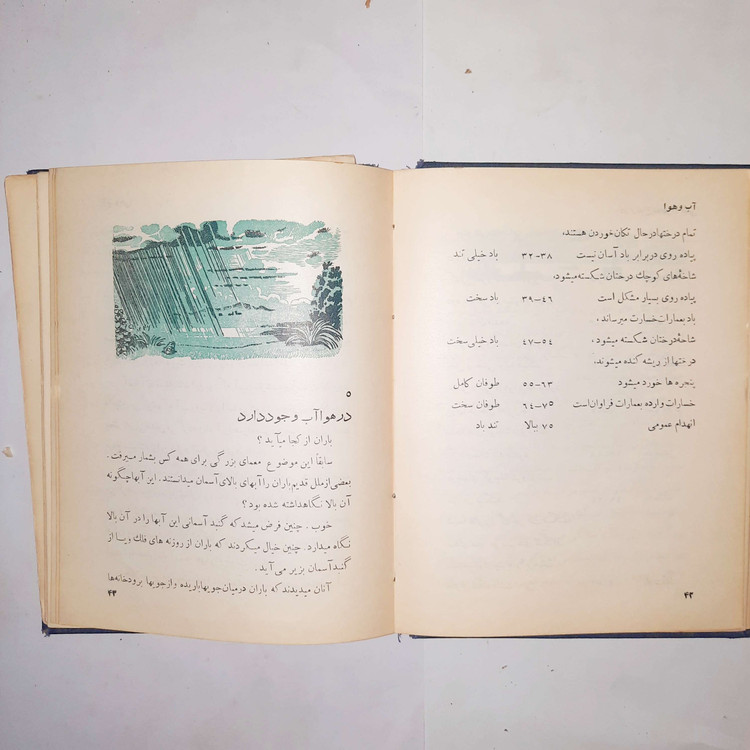 آب و هوا
تمام درختها در حال تکان خوردن هستند،
پیاده روی در برابر باد آسان نیست ۳۲-۳۸ باد خیلی تند
شاخه‌های کوچک درختان شکسته میشود،
پیاده روی بسیار مشکل است ۳۹-۴۶ باد سخت
باد بعمارات خسارت میرساند،
شاخهٔ درختان شکسته میشود، ۴۷-۵۴ باد خیلی سخت
درختها از ریشه کنده میشوند،
پنجره ها خورد میشود ۵۵-۶۳ طوفان کامل
خسارات وارده بعمارات فراوان است ۶۴-۷۵ طوفان سخت
انهدام عمومی ۷۵ ببالا تند باد
۴۲
۵
در هوا آب وجود دارد
باران از کجا میآید ؟
سابقاً این موضوع معمای بزرگی برای همه کس بشمار میرفت .
بعضی از ملل قدیم، باران را آبهای بالای آسمان میدانستند. این آبها چگونه
آن بالا نگاهداشته شده بود ؟
خوب . چنین فرض میشد که گنبد آسمانی این آبها را در آن بالا
نگاه میدارد . چنین خیال میکردند که باران از روزنه های فلک و یا از
گنبد آسمان بزیر می آید .
آنان میدیدند که باران درمیان جویها باریده و از جویها برودخانه‌ها
۴۳